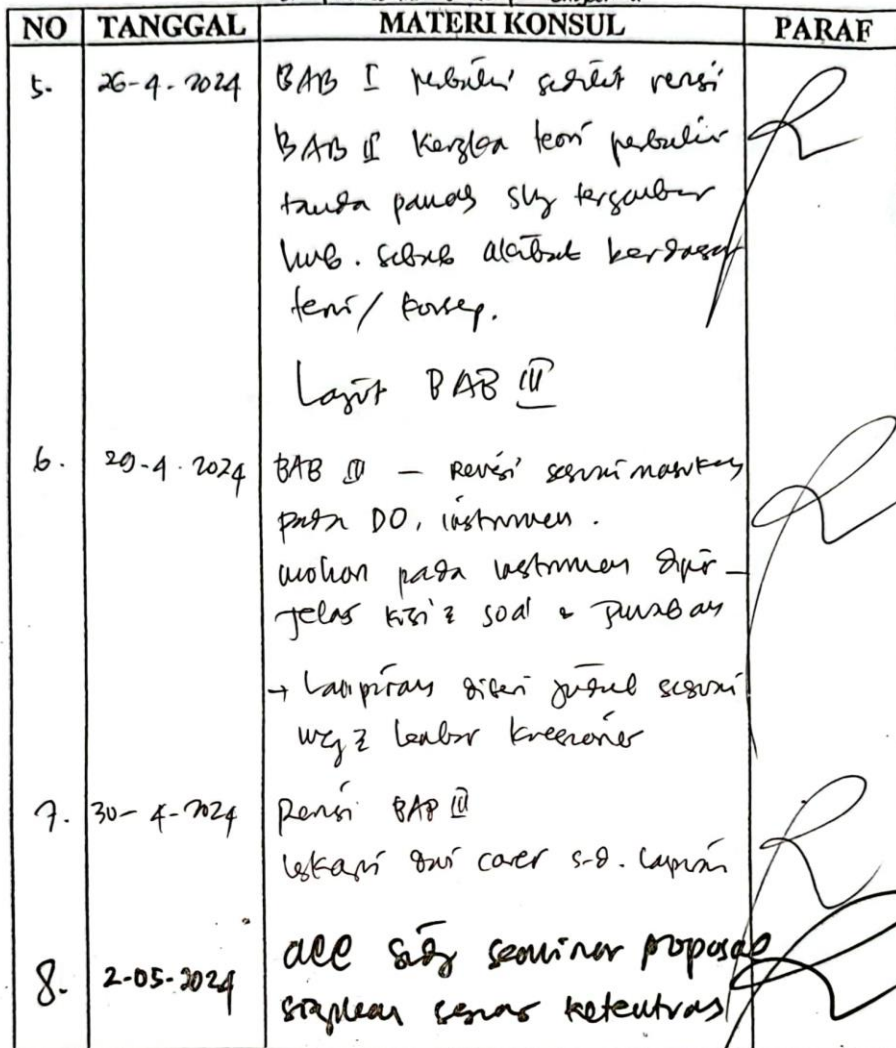 NO TANGGAL MATERI KONSUL PARAF
5. 26-4-2024 BAB I perbaiki sedikit revisi
BAB II Kerangka teori perbaiki
tanda panah shg tergambar
hub. sebab akibat berdasar
teori / konsep.
Lanjut BAB III
6. 29-4-2024 BAB III — Revisi sesuai masukan
pada DO, instrumen.
mohon pada instrumen diper-
jelas kisi2 soal & jawaban
→ Lampiran diberi judul sesuai
lembar kuesioner
7. 30-4-2024 Revisi BAB III
lengkapi dari cover s.d. lampiran
8. 2-05-2024 acc seminar proposal
siapkan sesuai ketentuan